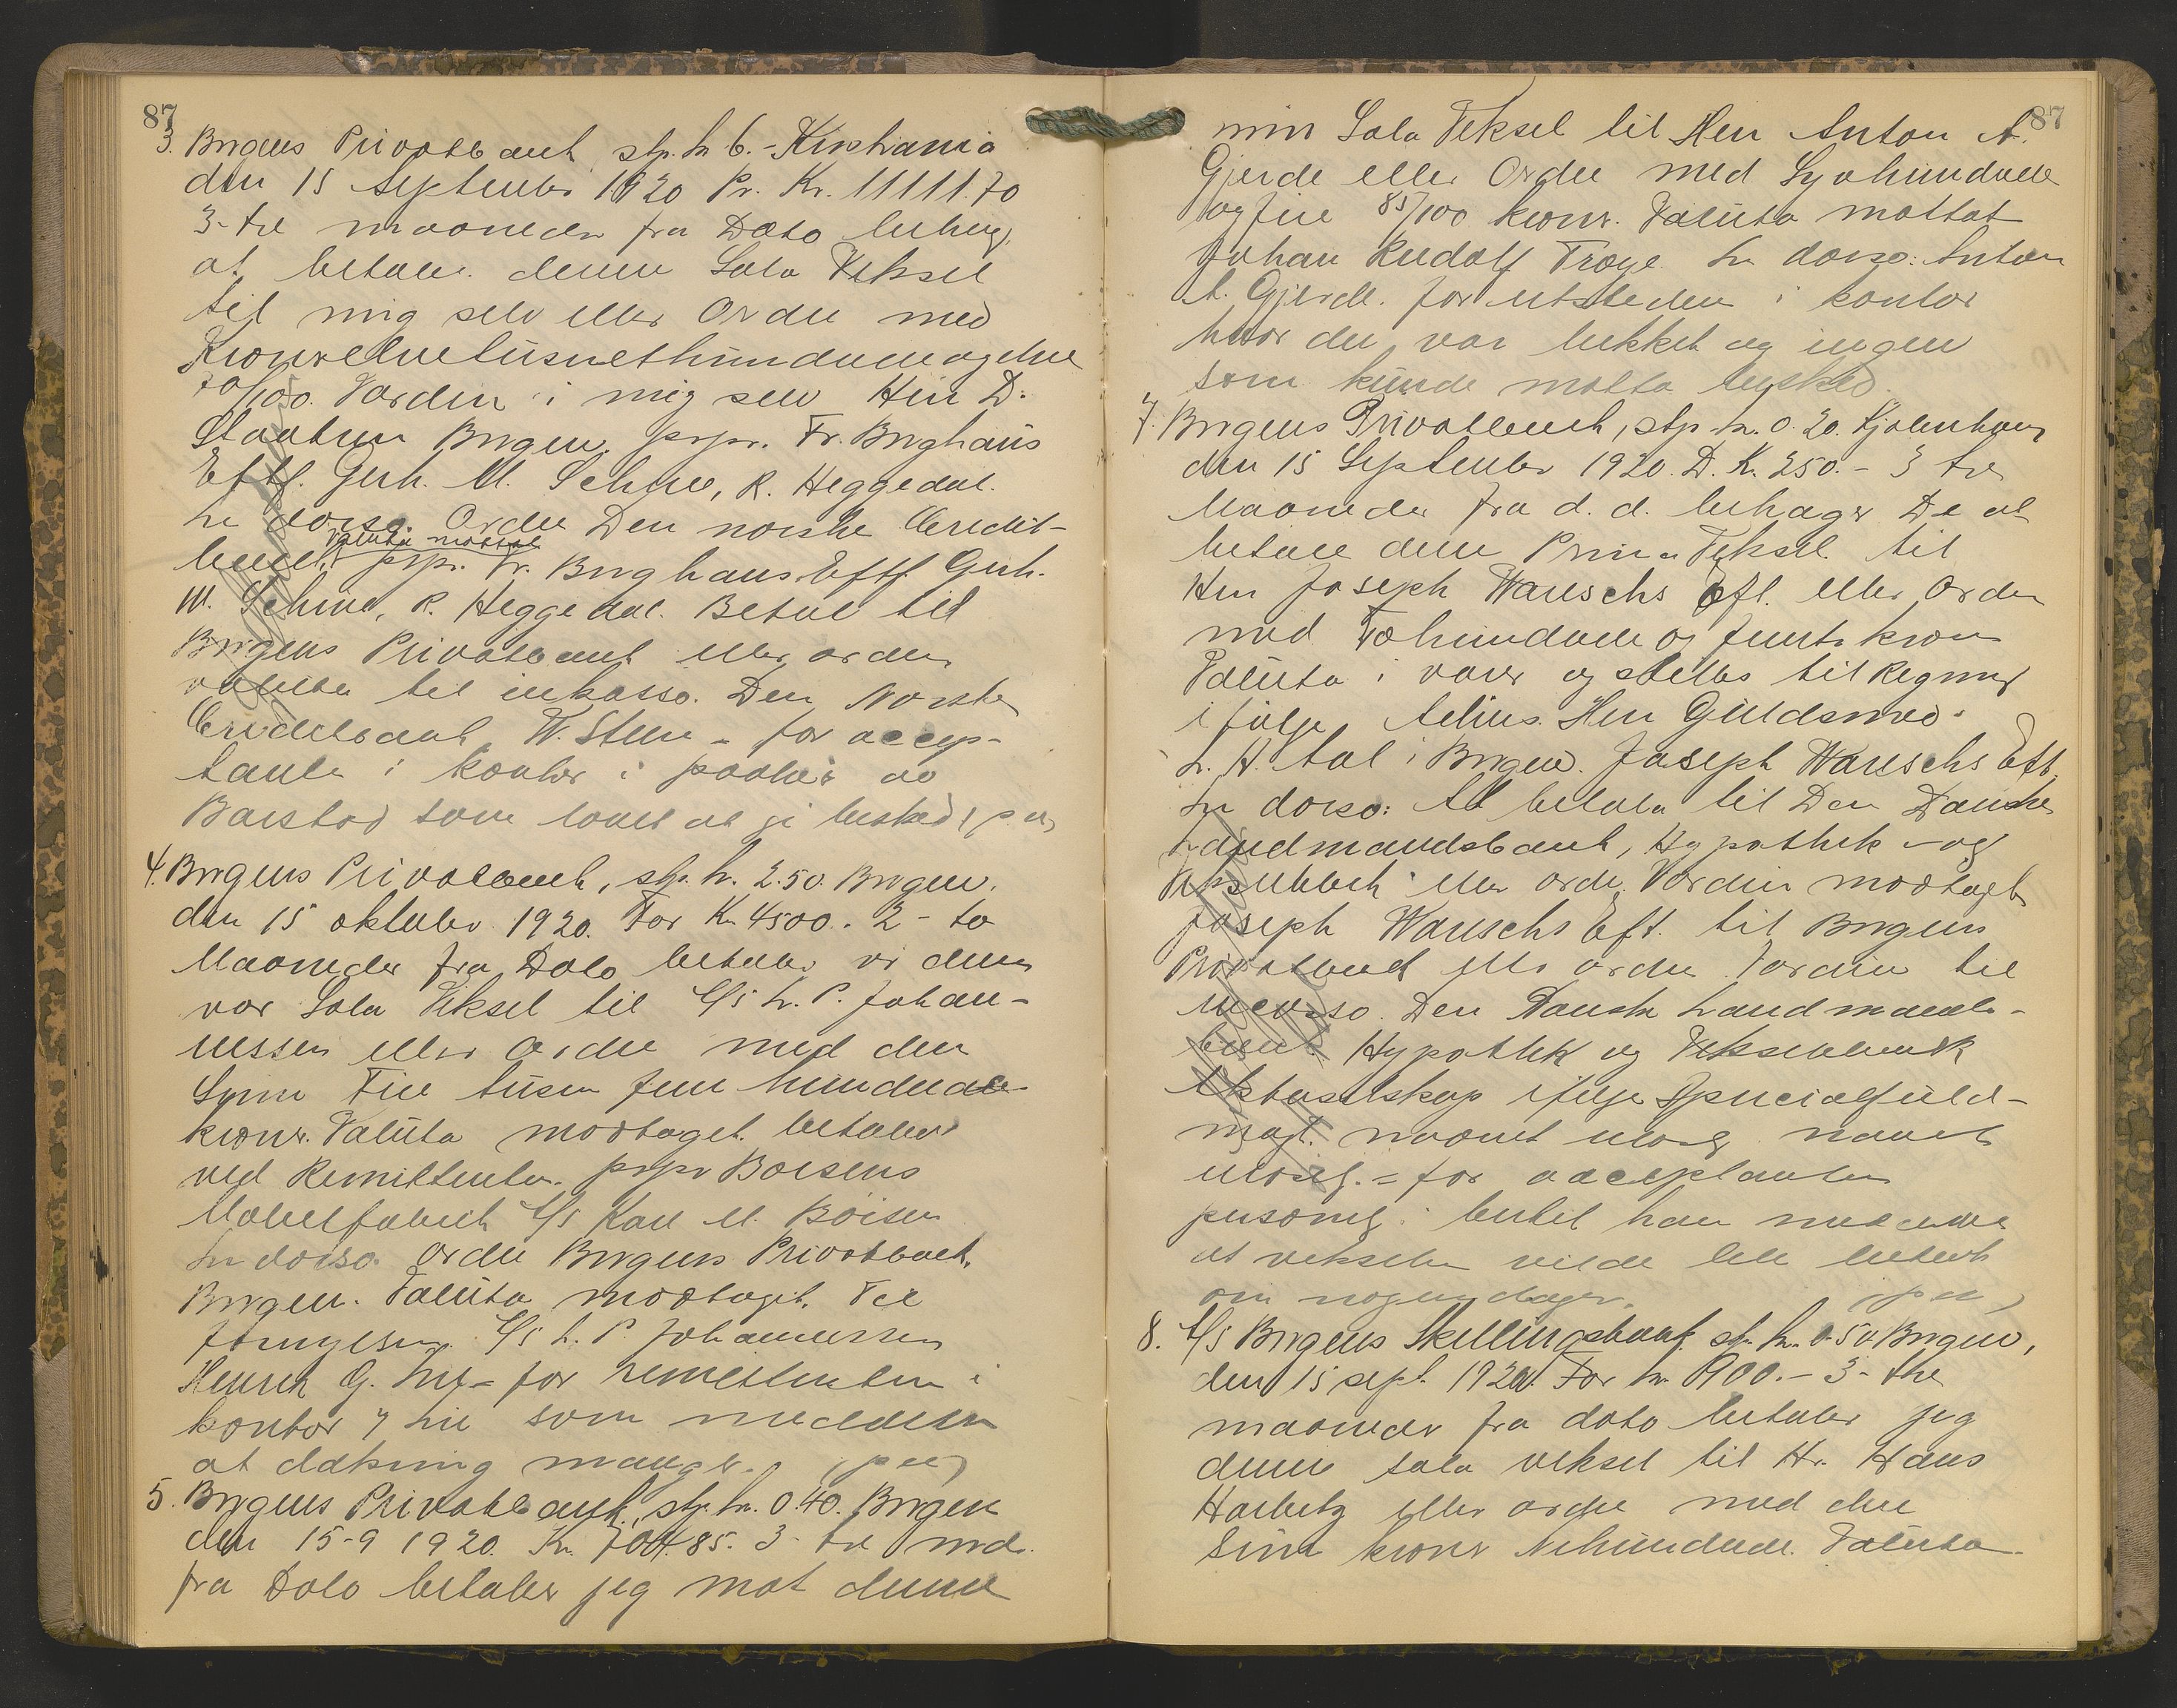 87
3. Bergens Privatbank stp. kr. 6.- Kristiania
den 15 September 1920 Pr. Kr. 11111.70
3- tre maaneder fra Dato behag.
at betale denne Sola Veksel
til mig selv eller Ordre med
Kronerelvetusenethundredeogelve
70/100. Værdien i mig selv Herr D.
Bergen. prpr. Fr. Berghaus
Eftf. Gerh. M. R. Heggedal.
In dorso. Ordre Den norske Credit-
valuta mottat
bank. prpr. Fr. Berghaus Eftf. Gerh.
M. R. Heggedal. Betal til
Bergens Privatbank eller ordre
valuta til inkasso. Den Norske
Creditbank W. Steen - for accep-
tanten i kontor i paahør av
Barstad som lovet at gi besked, p.n.
4. Bergens Privatbank, stp. kr. 2.50. Bergen.
den 15 oktober 1920. For Kr. 4500.- 2- to
Maaneder fra Dato betaler vi denne
vor Sola Veksel til A/S L. P. Johan-
nessen eller Ordre med den
Sum Fire tusen fem hundrede
kroner. Valuta modtaget. betales
ved Remittenten. prpr Boisens
Møbelfabrik A/S Karl M. Boisen
In dorso. Ordre Bergens Privatbank.
Bergen. Valuta modtaget. Til
fornyelse. A/S L. P. Johannessen
Henrik G. - for remittenten i
kontor som meddelte
at dækning mangler. (p n)
5. Bergens Privatbank, stp. kr. 0.40. Bergen
den 15-9 1920. Kr. 704.85. 3- tre md.
fra Dato betaler jeg mot denne
87
min Sola Veksel til Herr Anton A.
Gjerde eller Ordre med Syvhundrede
ogfire 85/100 kroner. Valuta mottat
Johan Rudolf Troye. In dorso: Anton
A. Gjerde. for utstederen i kontor
hvor der var lukket og ingen
som kunde motta besked.
7. Bergens Privatbank, stp. kr. 0.20. Kjøbenhavn
den 15 September 1920. D. K. 250.- 3 tre
Maaneder fra d. d. behager De at
betale denne Prima Veksel til
Herr Joseph Wauschs Eft. eller Ordre
med Tohundrede og femti kroner
Valuta i varer og stilles til Regning
ifølge Advis. Herr Guldsmed
L. H. Aal i Bergen. Joseph Wauschs Eft.
In dorso: At betale til Den Danske
Landmandsbank, Hypothek - og
Vekselbank eller ordre. Værdien modtaget
Joseph Wauschs Eft. til Bergens
Privatbank eller ordre Værdien til
incasso. Den Danske Landmands-
bank. Hypothek og Vekselbank
Aktieselskap ifølge Specialfuld-
magt. navnet ulæselig navnet
ulæselig. - for acceptanten
personlig. hertil han meddelte
at vekselen vilde bli betalt
om nogen dager. (p n)
8. A/S Bergens Skillingsbank. stp. kr. 0.50 Bergen,
den 15 sept. 1920. For kr. 900.- 3- tre
maaneder fra dato betaler jeg
denne sola veksel til Hr. Hans
Harbitz eller ordre med den
Sum kroner Nihundrede. Valuta